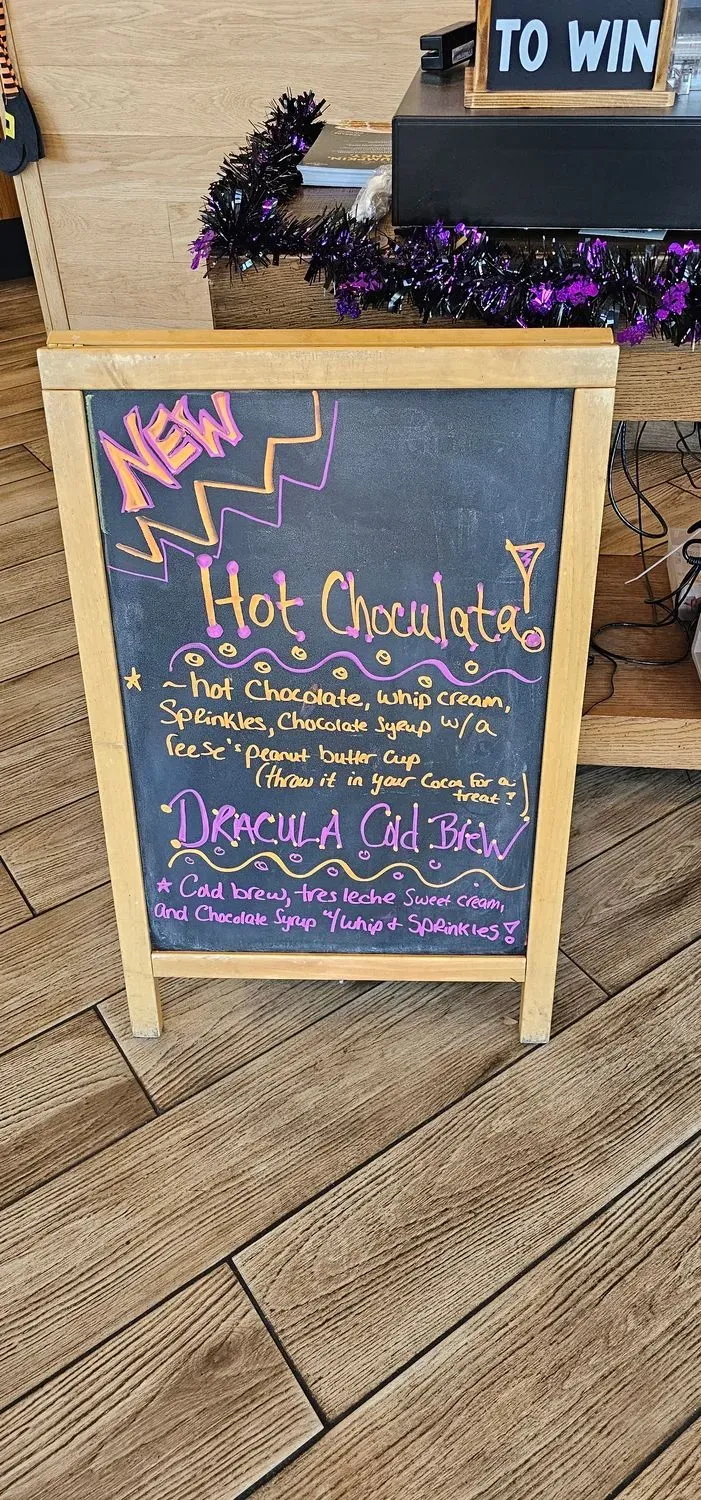 TO WIN
NEW
Hot Choculata!
~ hot Chocolate, whip cream,
Sprinkles, Chocolate Syrup w/a
reese's peanut butter cup
(throw it in your Cocoa for a
treat!)
DRACULA Cold Brew
Cold brew, tres leche Sweet cream,
and Chocolate Syrup w/whip + SPRINKLES!